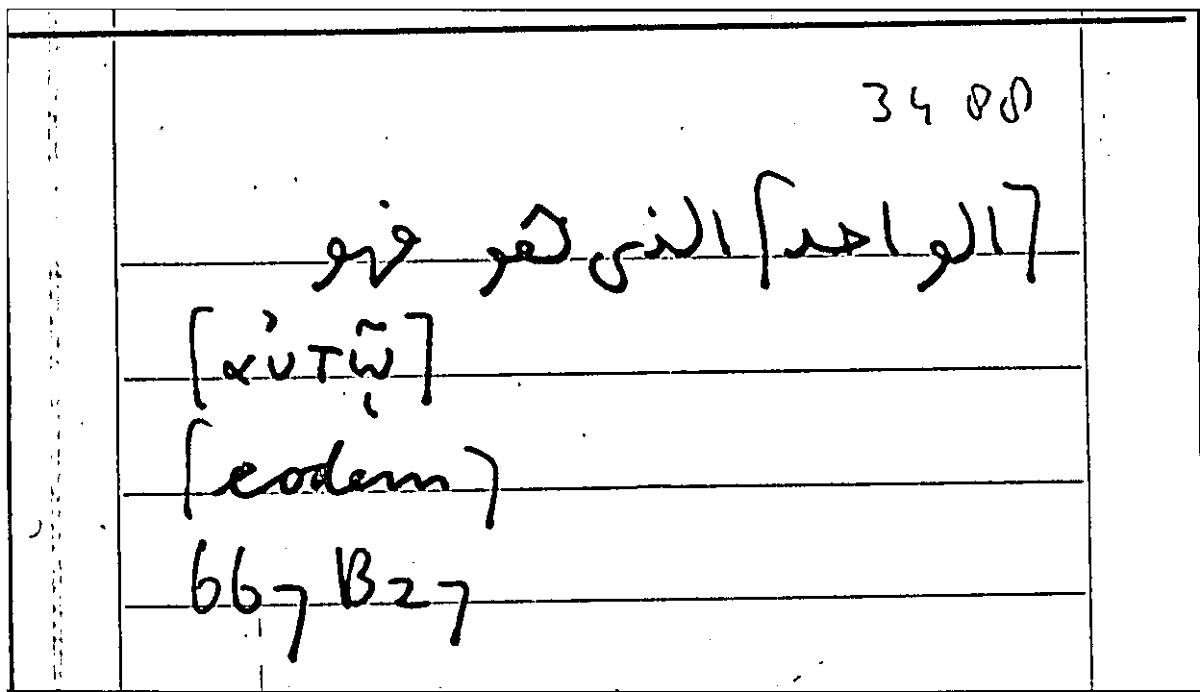 3488
[الواحد] الذى هو فهو
[αὐτῷ]
[eodem]
667 B27